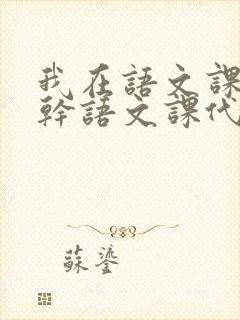 我在語文課
幹語文課代
蘇鎏